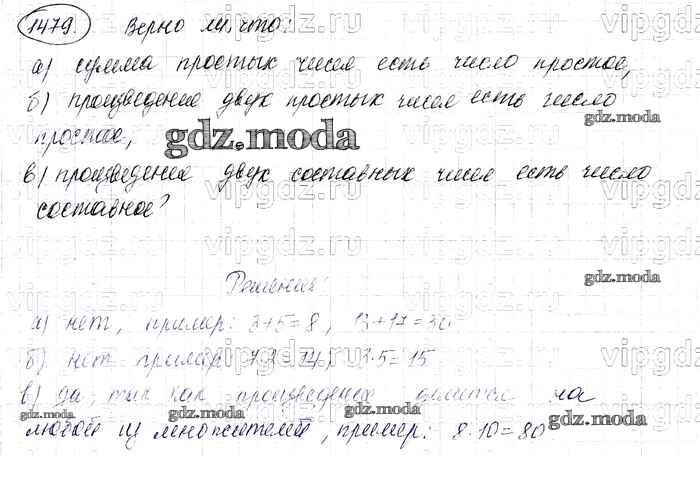 1479. Верно ли, что:
а) сумма простых чисел есть число простое,
б) произведение двух простых чисел есть число
простое,
в) произведение двух составных чисел есть число
составное?
Решение:
а) нет, пример: 3+5=8, 13+17=30
б) нет пример 7·2 14, 3·5=15
в) да, так как произведение делится на
любой из множителей, пример: 8·10=80
gdz.moda
gdz.moda
gdz.moda
gdz.moda
gdz.moda
gdz.moda
vipgdz.ru